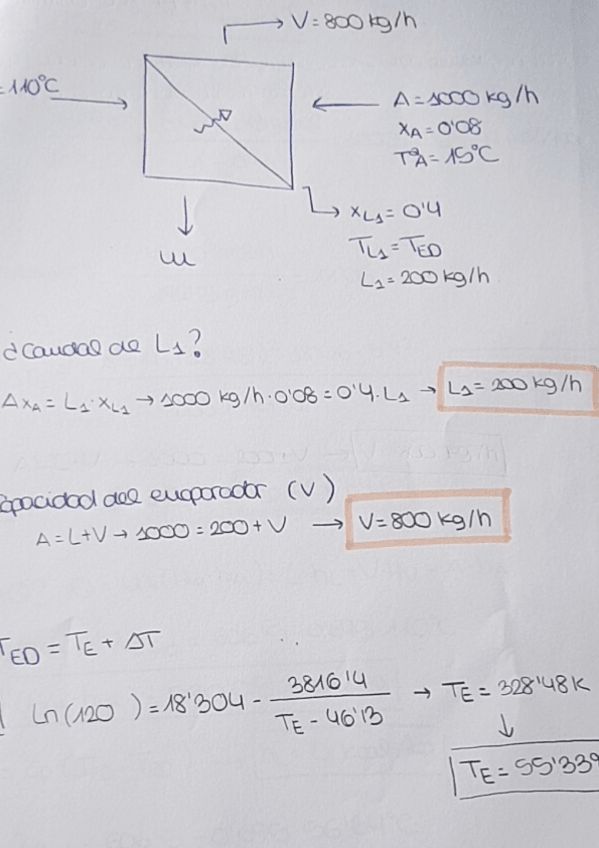 V = 800 kg/h
=110°C
A = 1000 kg/h
xA = 0'08
TªA = 15°C
xL1 = 0'4
TL1 = TED
L1 = 200 kg/h
w
¿Caudal de L1?
AxA = L1·xL1 → 1000 kg/h·0'08 = 0'4·L1 → L1 = 200 kg/h
apacidad del evaporador (V)
A = L+V → 1000 = 200 + V → V = 800 kg/h
TED = TE + ΔT
Ln(120 ) = 18'304 - 3816'4 / TE - 46'13 → TE = 328'48K
↓
TE = 55'339